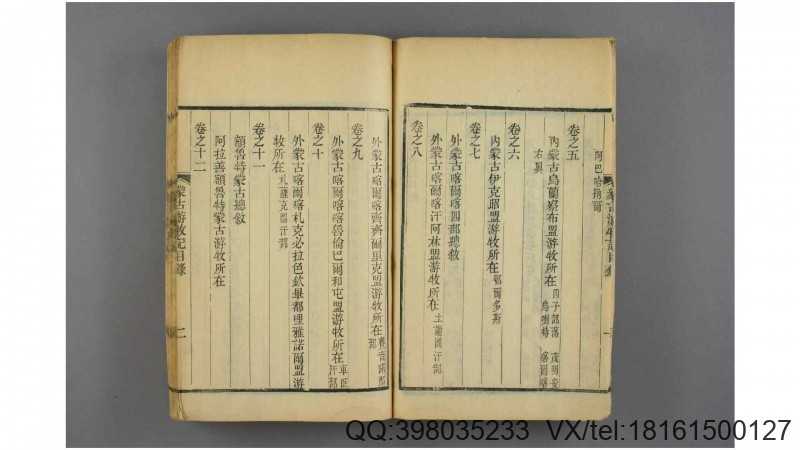 阿巴哈納爾
卷之五
內蒙古烏蘭察布盟游牧所在 四子部落 茂明安 烏喇特 喀爾喀右翼
卷之六
內蒙古伊克昭盟游牧所在 鄂爾多斯
卷之七
外蒙古喀爾喀四部總敘
卷之八
外蒙古喀爾喀汗阿林盟游牧所在 土謝圖汗部
外蒙古喀爾喀齊齊爾里克盟游牧所在 賽音諾顏部
卷之九
外蒙古喀爾喀喀魯倫巴爾和屯盟游牧所在 車臣汗部
卷之十
外蒙古喀爾喀札克必拉色欽畢都哩雅諾爾盟游
牧所在 札薩克圖汗部
卷之十一
額魯特蒙古總敘
阿拉善額魯特蒙古游牧所在
卷之十二
蒙古游牧記目錄
二
QQ:398035233 VX/tel:18161500127